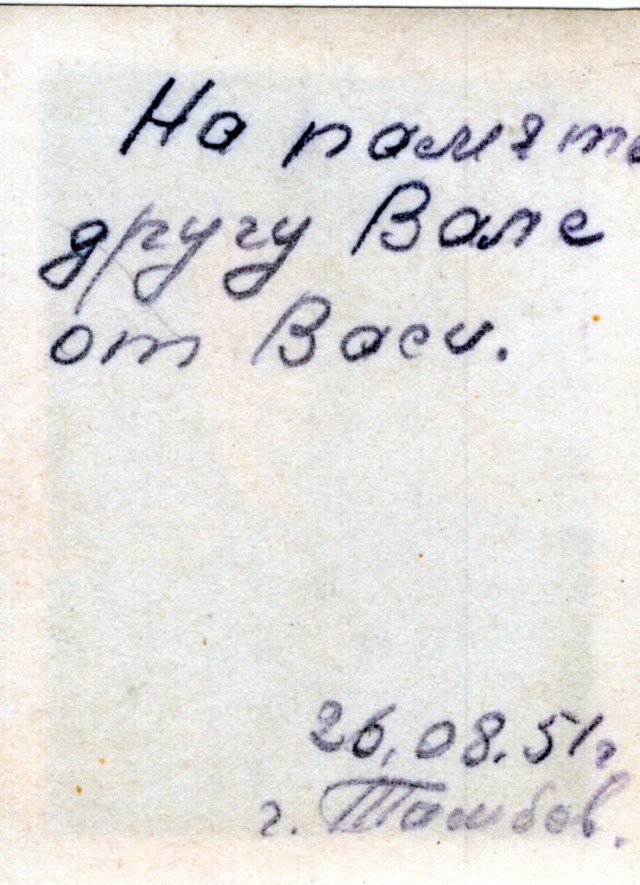 На память
другу Вале
от Васи.
26.08.51г.
г. Тамбов.